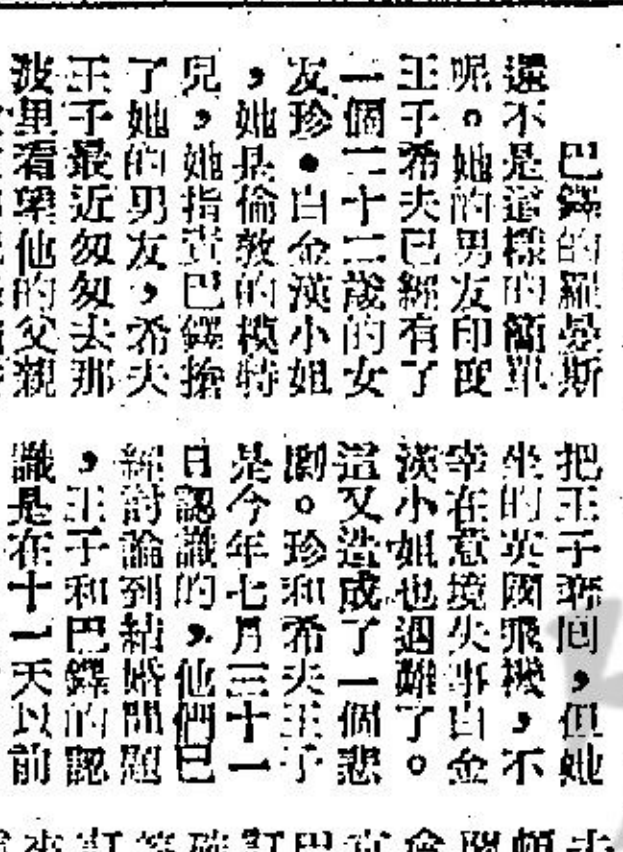 巴鐸的羅曼斯
還不是這樣的簡單
呢。她的男友印度
王子希夫已經有了
一個二十二歲的女
友珍•白金漢小姐
，她是倫敦的模特
兒，她指責巴鐸搶
了她的男友，希夫
王子最近匆匆去那
波里看望他的父親
把王子回，但她
坐的英國飛機，不
幸在意境失事白金
漢小姐也遇難了。
這又造成了一個悲
劇。珍和希夫王子
是今年七月三十一
日認識的，他們已
經討論到結婚問題
，王子和巴鐸的認
識是在十一天以前